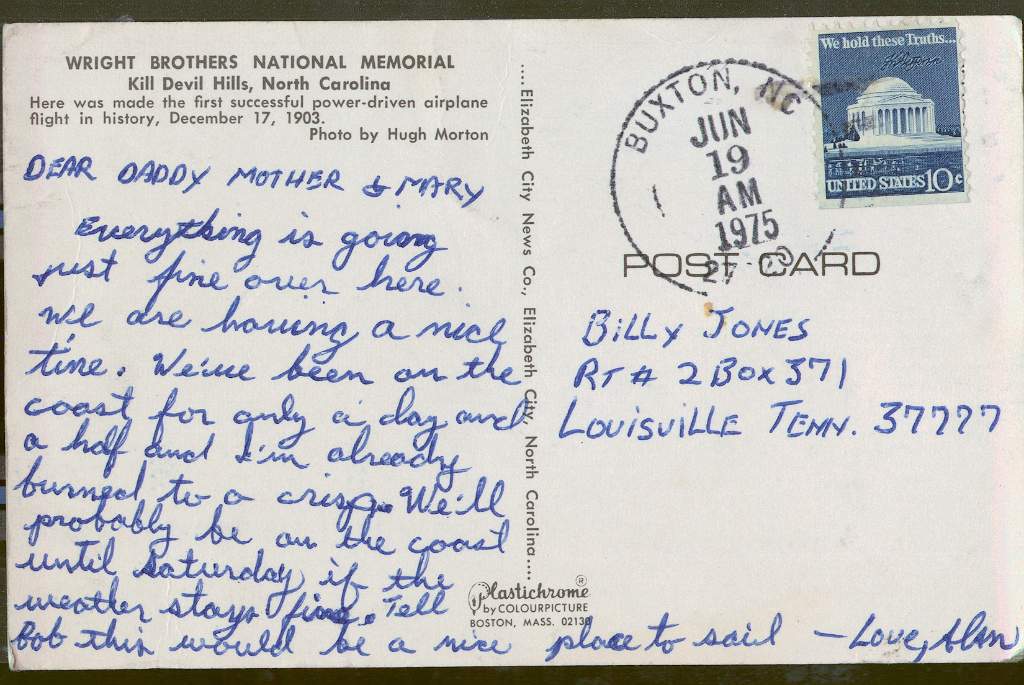 WRIGHT BROTHERS NATIONAL MEMORIAL
Kill Devil Hills, North Carolina
Here was made the first successful power-driven airplane
flight in history, December 17, 1903.
Photo by Hugh Morton
DEAR DADDY MOTHER & MARY
Everything is going
just fine over here.
We are having a nice
time. We've been on the
coast for only a day and
a half and I'm already
burned to a crisp. We'll
probably be on the coast
until Saturday if the
weather stays fine. Tell
Bob this would be a nice place to sail — Love, Alan
.....Elizabeth City News Co., Elizabeth City, North Carolina.....
Plastichrome ®
by COLOURPICTURE
BOSTON, MASS. 02130
We hold these Truths...
UNITED STATES 10c
BUXTON, NC
JUN
19
AM
1975
POST CARD
BILLY JONES
RT # 2 BOX 371
LOUISVILLE TENN. 37777